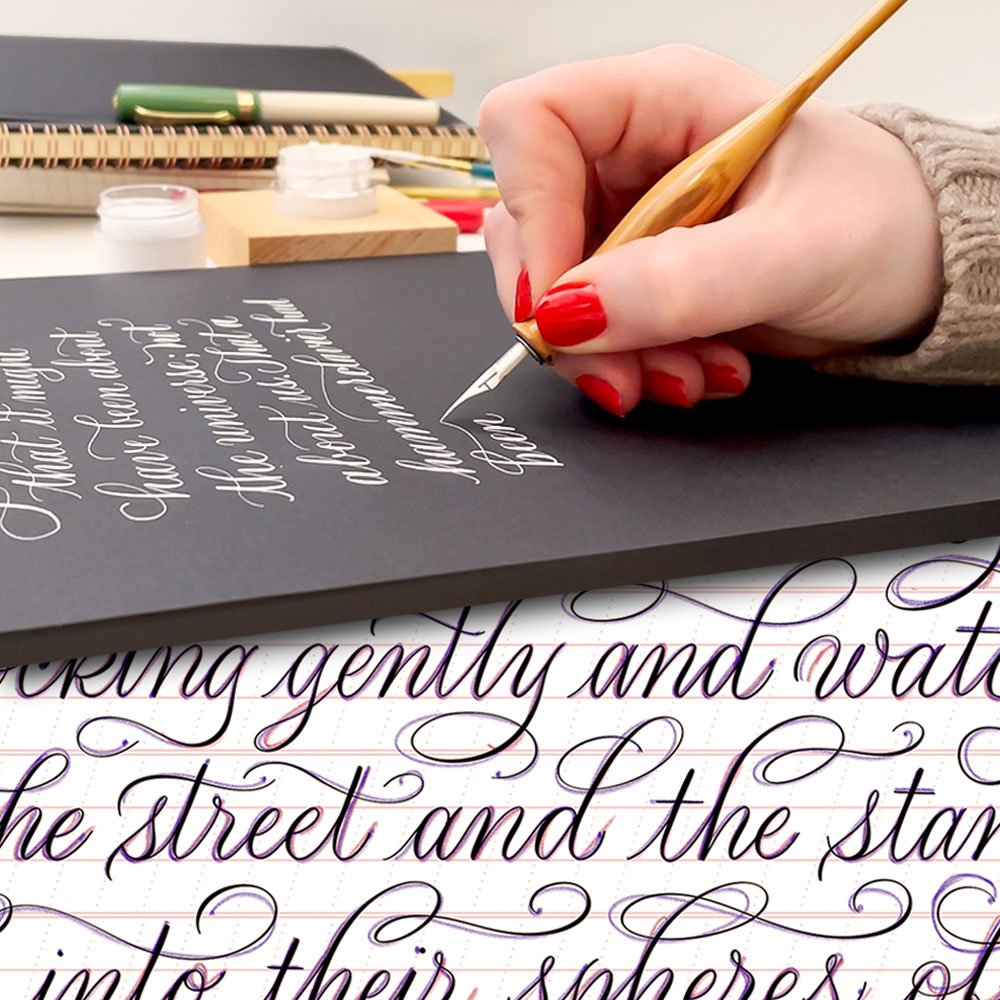 that it might
have been about
the universe; not
about us. That a
been
king gently and watc
he street and the star
into their spheres of